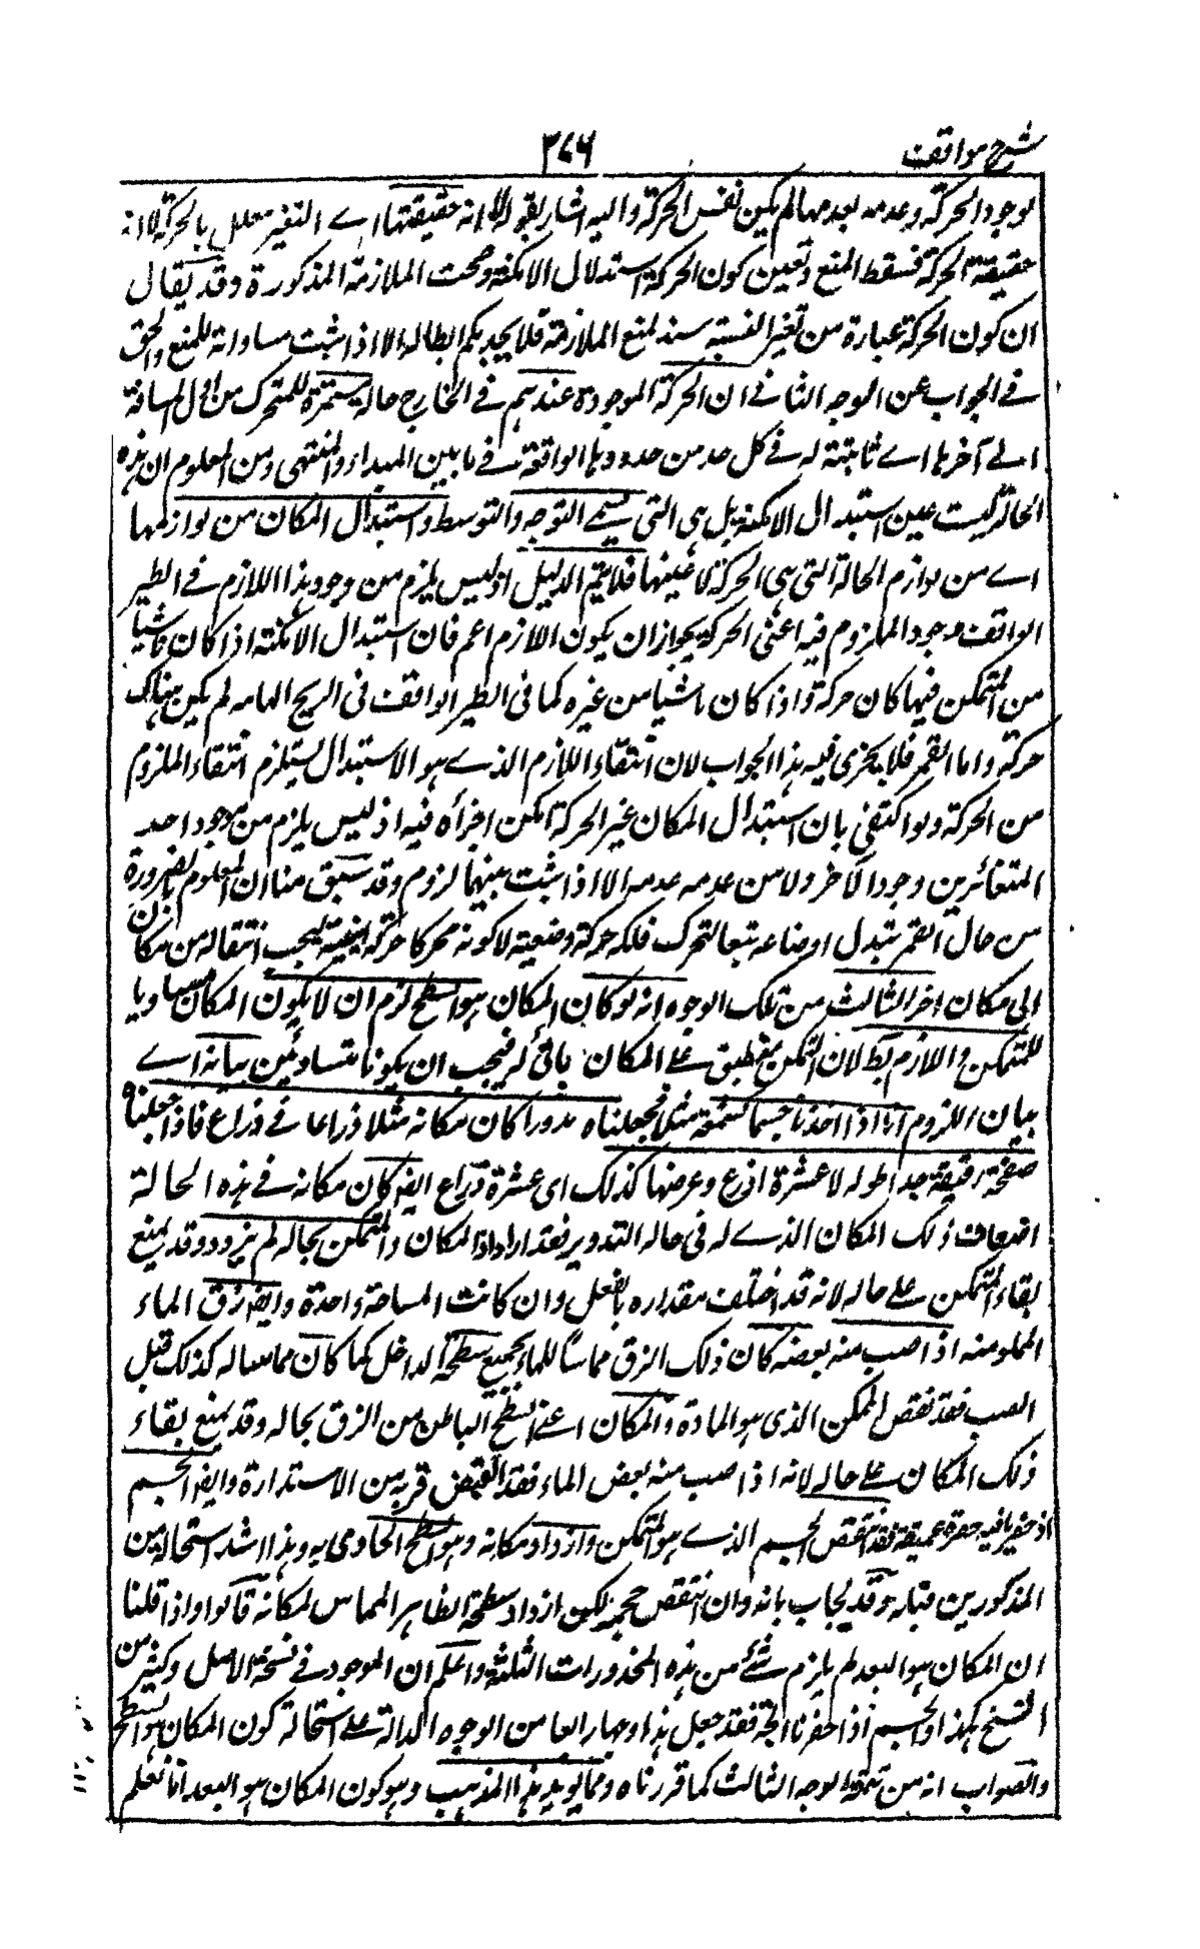 شرح مواقف ٣٧٦
لوجود الحركة وعدمه بعدمها لم يكن نفس الحركة واليه اشار بقوله لا انه حقيقتها اے التغير معلل بالحركة لا انه
حقيقة الحركة فسقط المنع وتعين كون الحركة استدلال الامكنة وصحت الملازمة المذكورة وقد يقال
ان كون الحركة عبارة من تغير النسبة سند لمنع الملازمة فلا يجديكم ابطاله الا اذا ثبت مساواته للمنع والحق
فے الجواب عن الوجه الثانے ان الحركة الموجودة عندهم فے الخارج حالة مستمرة للمتحرك من اول المسافة
الے آخرها اے ثابتة له فے كل حد من حدودها الواقعة فے ما بين المبداء والمنتهى ومن المعلوم ان هذه
الحالة ليست عين استبدال الامكنة بل هى التى تسمے التوجه والتوسط واستبدال المكان من لوازمها
اے من لوازم الحالة التى هى الحركة لا عينها فلا يتم الدليل اذ ليس يلزم من وجود هذا اللازم فے الطير
الواقف وجود الملزوم فيه اعنى الحركة بجواز ان يكون اللازم اعم فان استبدال الامكنة اذا كان ناشيا
من المتمكن فيها كان حركة واذا كان ناشيا من غيره كما فى الطير الواقف فى الريح الهابة لم يكن هناك
حركة واما القمر فلا يجزى فيه هذا الجواب لان انتفاء اللازم الذے هو الاستبدال يستلزم انتفاء الملزوم
من الحركة ولو اكتفى بان استبدال المكان غير الحركة امكن اجرأه فيه اذ ليس يلزم من وجود احد
المتغائرين وجود الآخر ولا من عدمه عدمه الا اذا ثبت بينهما لزوم وقد سبق منا ان المعلوم بالضرورة
من حال القمر تبدل اوضاعه تبعا لتحرك فلكه حركة وضعية لا كونه متحركا حركة اينية ليجب انتقاله من مكان
الى مكان اخر الثالث من تلك الوجوه انه لو كان المكان هو السطح لزم ان لا يكون المكان مساويا
للمتمكن واللازم بط لان المتمكن منطبق علے المكان مالئ له فيجب ان يكونا متساويين بيانه اے
بيان اللزوم انا اذا اخذنا جسما كشمعة مثلا فجعلناه مدورا كان مكانه مثلا ذراعا فے ذراع فاذا جعلناه
صفحة رقيقة جدا طولها عشرة اذرع وعرضها كذلك اى عشرة ذراع ايضا كان مكانه فے هذه الحالة
اضعاف ذلك المكان الذے له فى حالة التدوير فقد ازداد المكان والمتمكن بحاله لم يزدد وقد يمنع
بقاء المتمكن علے حاله لانه قد اختلف مقداره بالفعل وان كانت المساحة واحدة وايضا زق الماء
المملو منه اذا صب منه بعضه كان ذلك الزق مماساً للماء بجميع سطحه الداخل كما كان مماسا له كذلك قبل
الصب فقد نقص المتمكن الذى هو المادة والمكان اعنے السطح الباطن من الزق بحاله وقد يمنع بقاء
ذلك المكان علے حاله لانه اذا صب منه بعض الماء فقد انقبض قربه من الاستدارة وايضا الجسم
اذ حفرنا فيه حفرة عميقة فقد نقص الجسم الذے هو المتمكن وازداد مكانه وهو السطح الحاوى به وهذا اشد استحالة من
المذكورين قبله وقد يجاب بانه وان انتقص حجمه لكن ازداد سطحه الظاهر المماس لمكانه قالوا واذا قلنا
ان المكان هو البعد لم يلزم شئ من هذه المحذورات الثلثة واعلم ان الموجود فے نسخة الاصل وكثير من
النسخ هكذا والجسم اذا حفرنا الخ فقد جعل هذا وجها رابعا من الوجوه الدالة علے استحالة كون المكان هو السطح
والصواب انه من تتمة الوجه الثالث كما قررناه ومما يويد هذا المذهب وهو كون المكان هو البعد انا نعلم